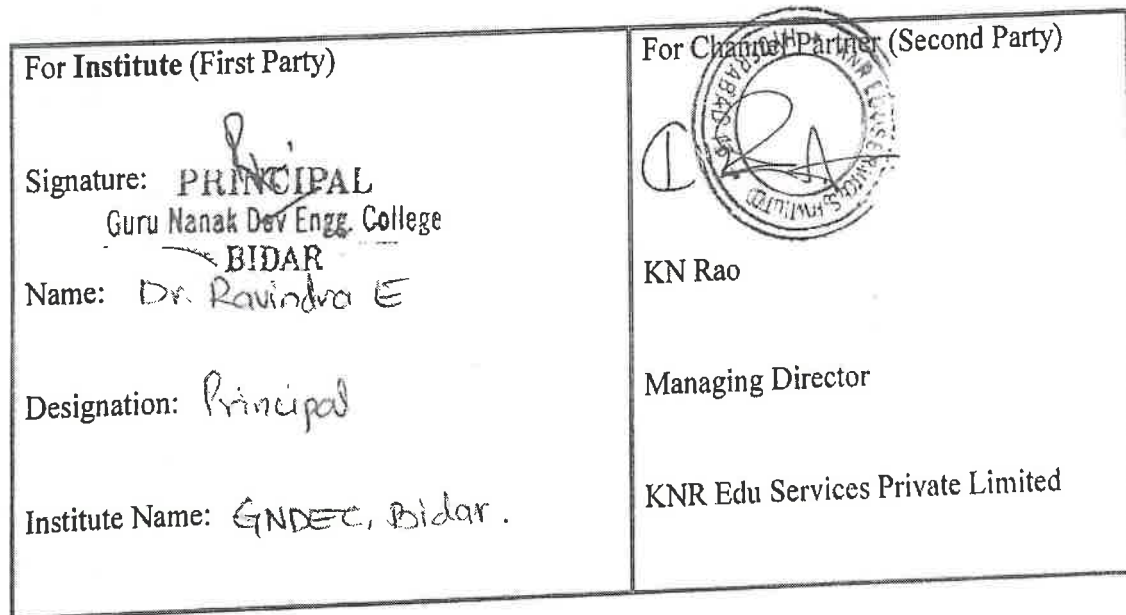 For Institute (First Party)
Signature:
PRINCIPAL
Guru Nanak Dev Engg. College
BIDAR
Name: Dr. Ravindra E
Designation: Principal
Institute Name: GNDEC, Bidar.
For Channel Partner (Second Party)
KNR EDU SERVICES PRIVATE LIMITED
HYDERABAD
KN Rao
Managing Director
KNR Edu Services Private Limited